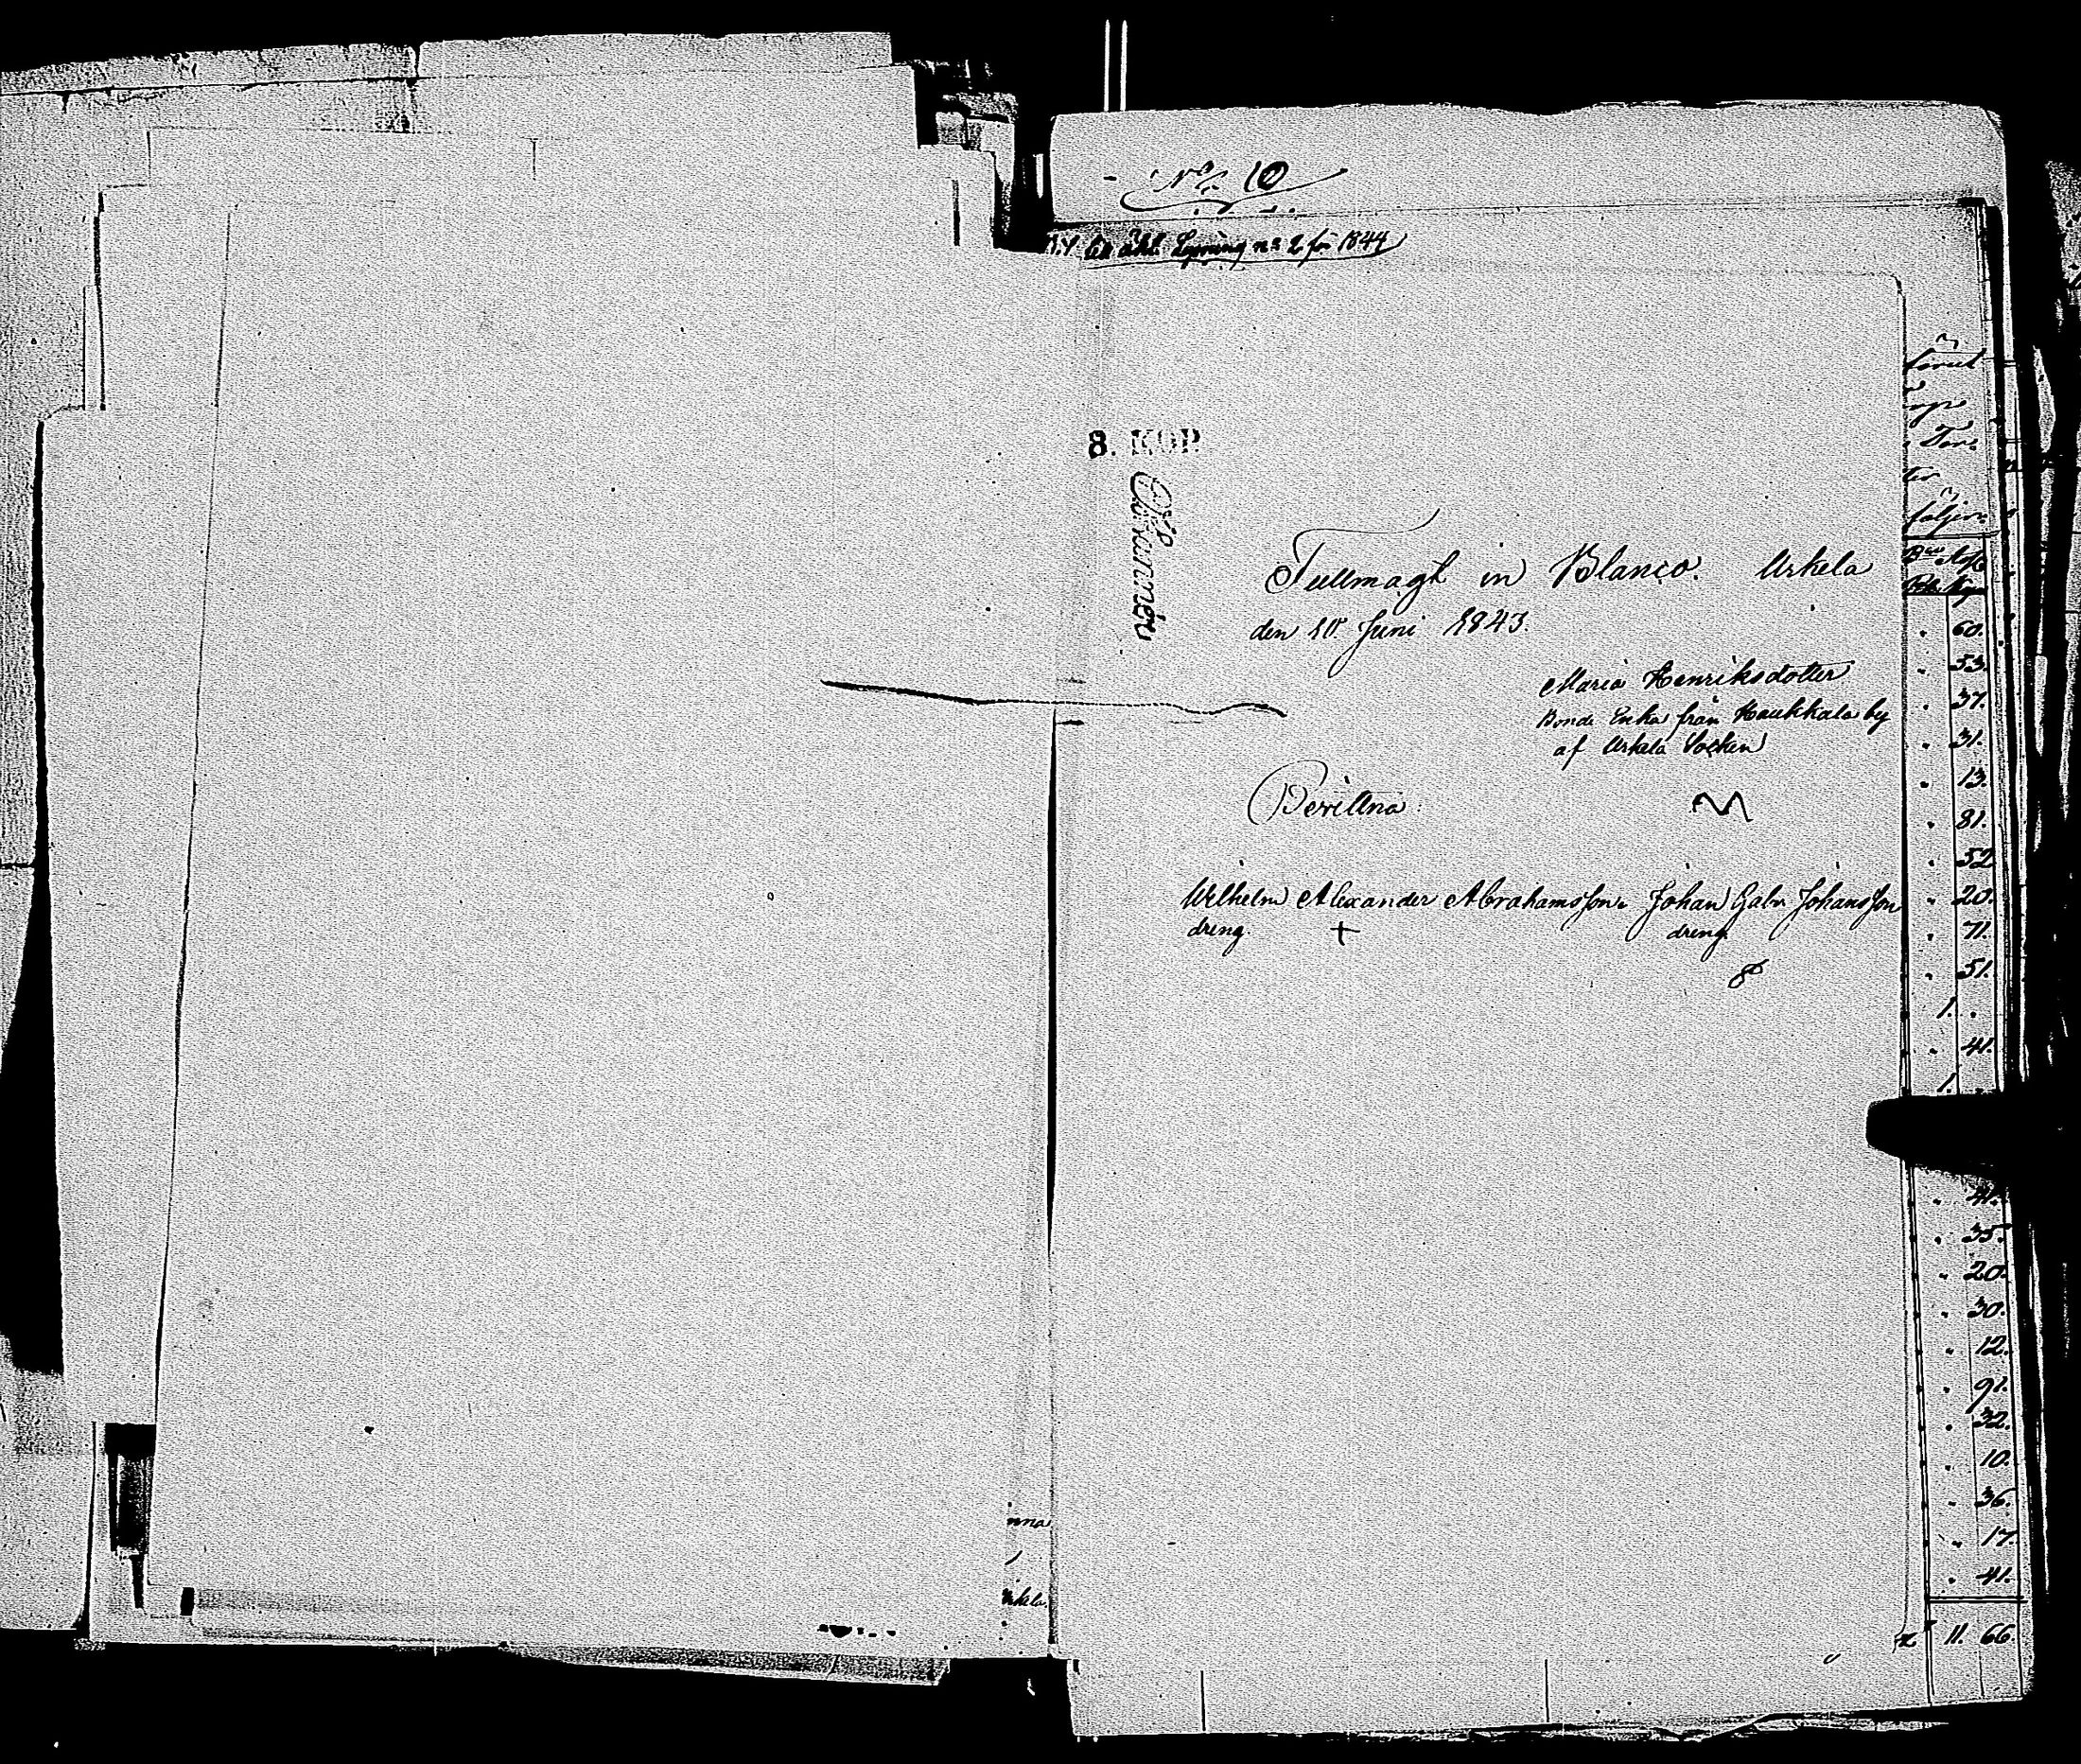 No. 10
till åhl. Syning no 2 för 1844
8. KOP.
Fullmagt in Blanco. Urkela
den 10 Juni 1843.
Maria Henriksdotter
Bonde Enka från Haukkala by
af Urkela Socken
Bevittna:
Wilhelm Alexander Abrahamsson. Johan Gabr Johansson
dreng. dreng.
60.
53.
37.
31.
13.
81.
52.
20.
71.
51.
1. .
41.
1.
41.
35.
20.
30.
12.
91.
32.
10.
36.
17.
41.
11. 66.
nna
rkela.